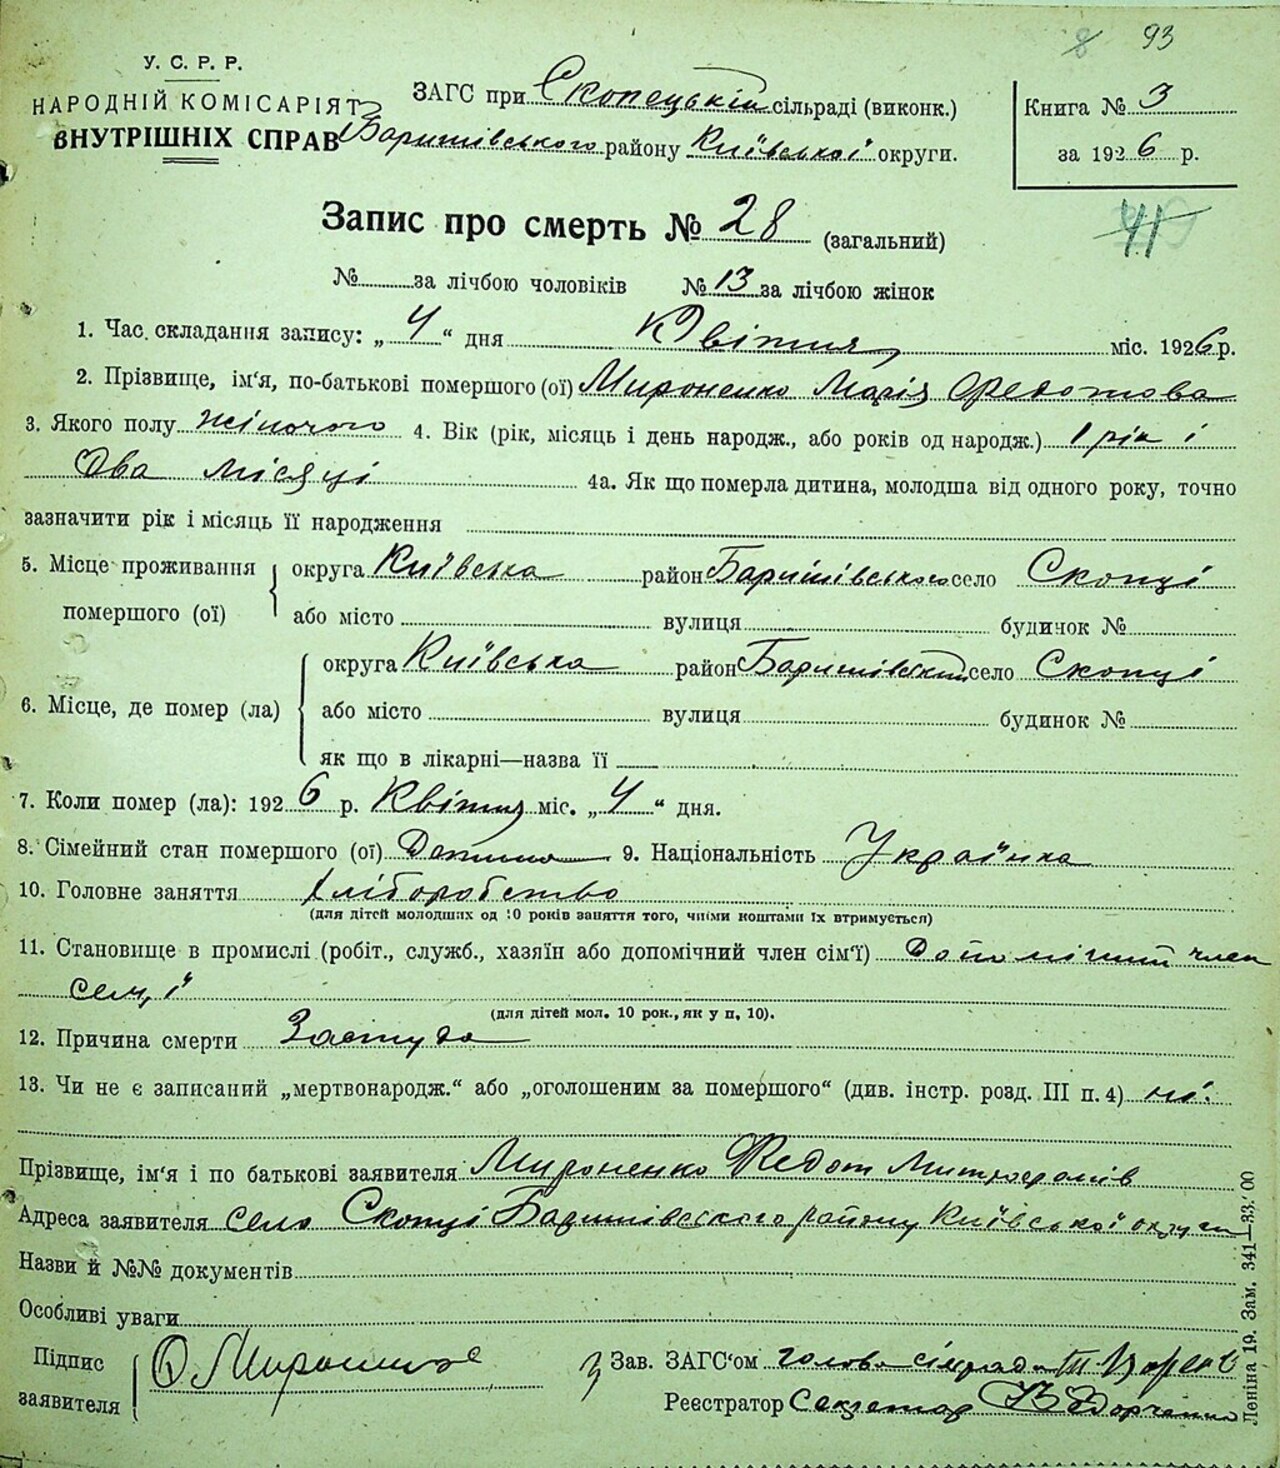 93
У. С. Р. Р.
НАРОДНІЙ КОМІСАРІЯТ
ВНУТРІШНІХ СПРАВ
ЗАГС при Скопецькій сільраді (виконк.)
Баришівського району Київської округи.
Книга № 3
за 1926 р.
41
Запис про смерть № 28 (загальний)
№ за лічбою чоловіків № 13 за лічбою жінок
1. Час складання запису: „4“ дня Квітня міс. 1926 р.
2. Прізвище, ім'я, по-батькові помершого (ої) Мироненко Марія Федотова
3. Якого полу жіночого 4. Вік (рік, місяць і день народж., або років од народж.) 1 рік і
два місяці 4а. Як що померла дитина, молодша від одного року, точно
зазначити рік і місяць її народження
5. Місце проживання помершого (ої) округа Київська район Баришівського село Скопці
або місто вулиця будинок №
6. Місце, де помер (ла) округа Київська район Баришівський село Скопці
або місто вулиця будинок №
як що в лікарні—назва її
7. Коли помер (ла): 1926 р. Квітня міс. „4“ дня.
8. Сімейний стан помершого (ої) Дитина 9. Національність Українка
10. Головне заняття Хліборобство
(для дітей молодших од 10 років заняття того, чиїми коштами їх втримується)
11. Становище в промислі (робіт., служб., хазяїн або допомічний член сім'ї) Допомічний член
семʼї
(для дітей мол. 10 рок., як у п. 10).
12. Причина смерти Застуда
13. Чи не є записаний „мертвонародж.“ або „оголошеним за помершого“ (див. інстр. розд. III п. 4) ні.
Прізвище, ім'я і по батькові заявителя Мироненко Федот Митрофанів
Адреса заявителя село Скопці Баришівського району Київської округи
Назви й №№ документів
Особливі уваги
Підпис заявителя Ф. Мироненко
Зав. ЗАГС'ом голова сільради
Реєстратор Секретар
Леніна 19. Зам. 341—33.'00